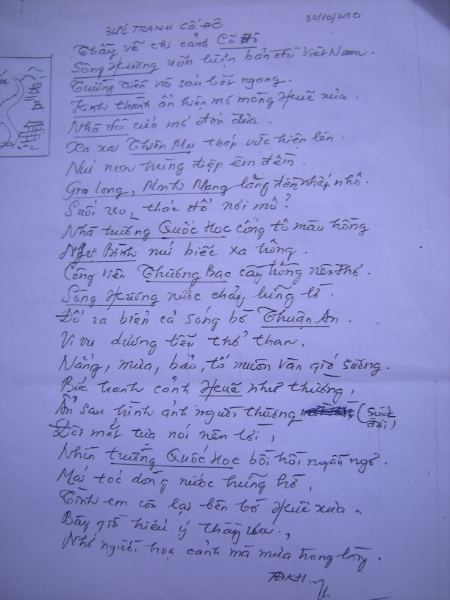 BỨC TRANH CỐ ĐÔ
30/10/2010
Thầy vẽ chi cảnh Cố Đô
Sông Hương uốn lượn bản đồ Việt Nam.
Trường Tiền vài sáu bắt ngang.
Kinh thành ẩn hiện mơ màng Huế xưa.
Nhà đò cửa mở đón đưa.
Xa xa Thiên Mụ tháp vừa hiện lên.
Núi non trùng điệp êm đềm.
Gia Long, Minh Mạng lăng đền nhấp nhô.
Suối reo, thác đổ nơi mô?
Nhà trường Quốc Học cũng tô màu hồng
Ngự Bình núi biếc xa trông.
Công viên Thương Bạc cây trồng nên thơ.
Sông Hương nước chảy lững lờ
Đổ ra biển cả sóng bờ Thuận An.
Vi vu dương liễu thở than,
Nắng, mưa, bão, tố muôn vàn gió sương.
Bức tranh cảnh Huế như thường,
Ẩn sau hình ảnh người thương (suốt đời)
Đôi mắt tựa nói nên lời,
Nhìn trường Quốc Học bồi hồi ngẩn ngơ.
Mái tóc dòng nước hững hờ,
Tình em còn lại bên bờ Huế xưa.
Bây giờ hiểu ý thầy chưa,
Nhớ người hoạ cảnh mà mưa trong lòng.